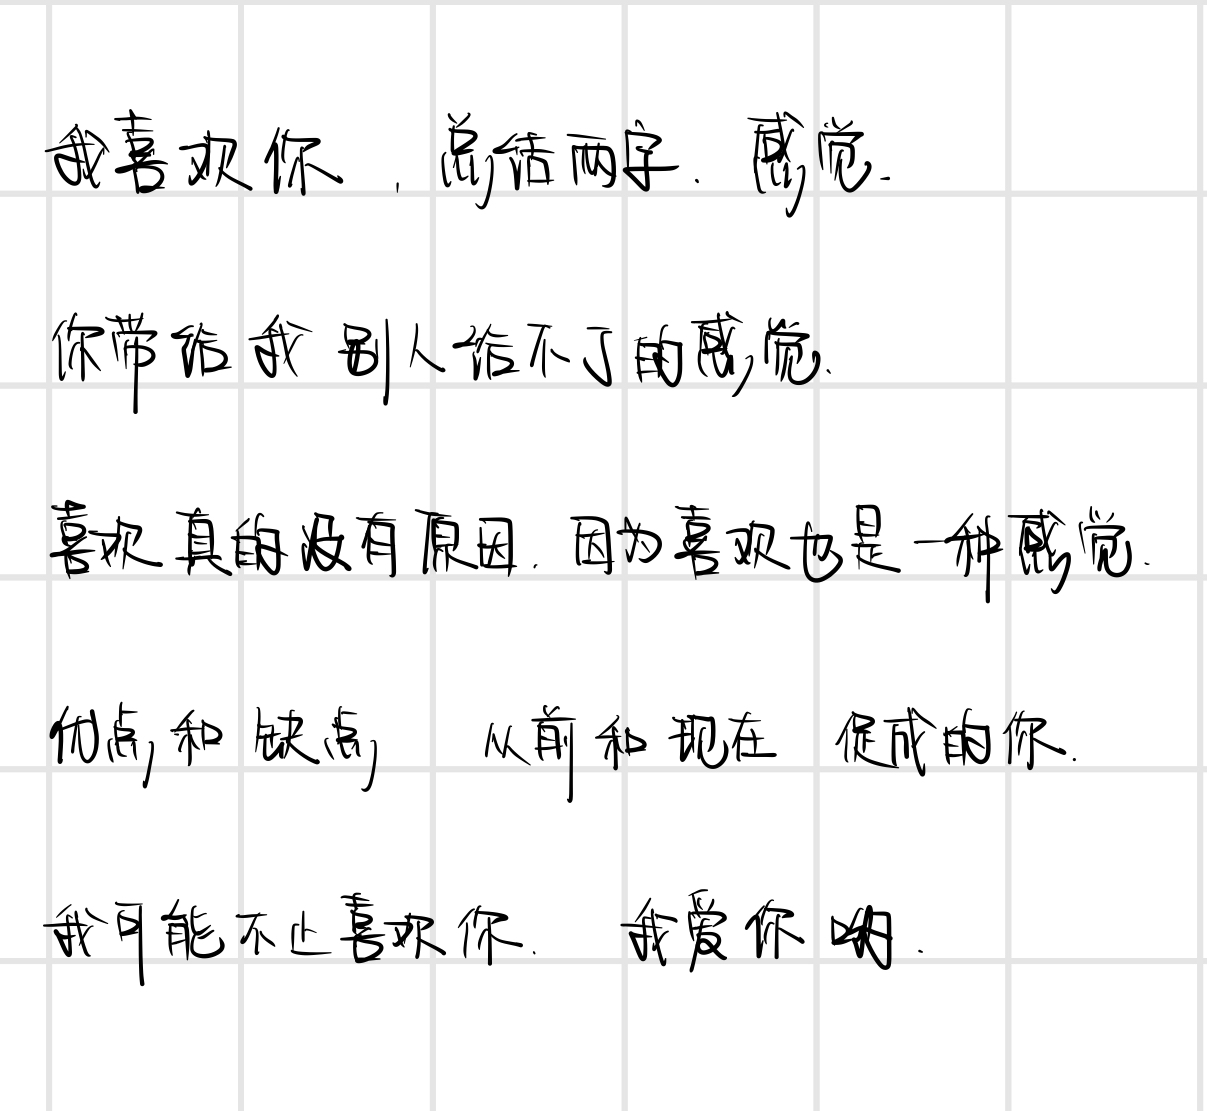 我喜欢你，总结两字．感觉．
你带给我别人给不了的感觉．
喜欢真的没有原因．因为喜欢也是一种感觉．
优点和缺点 从前和现在 促成的你．
我可能不止喜欢你． 我爱你哟．